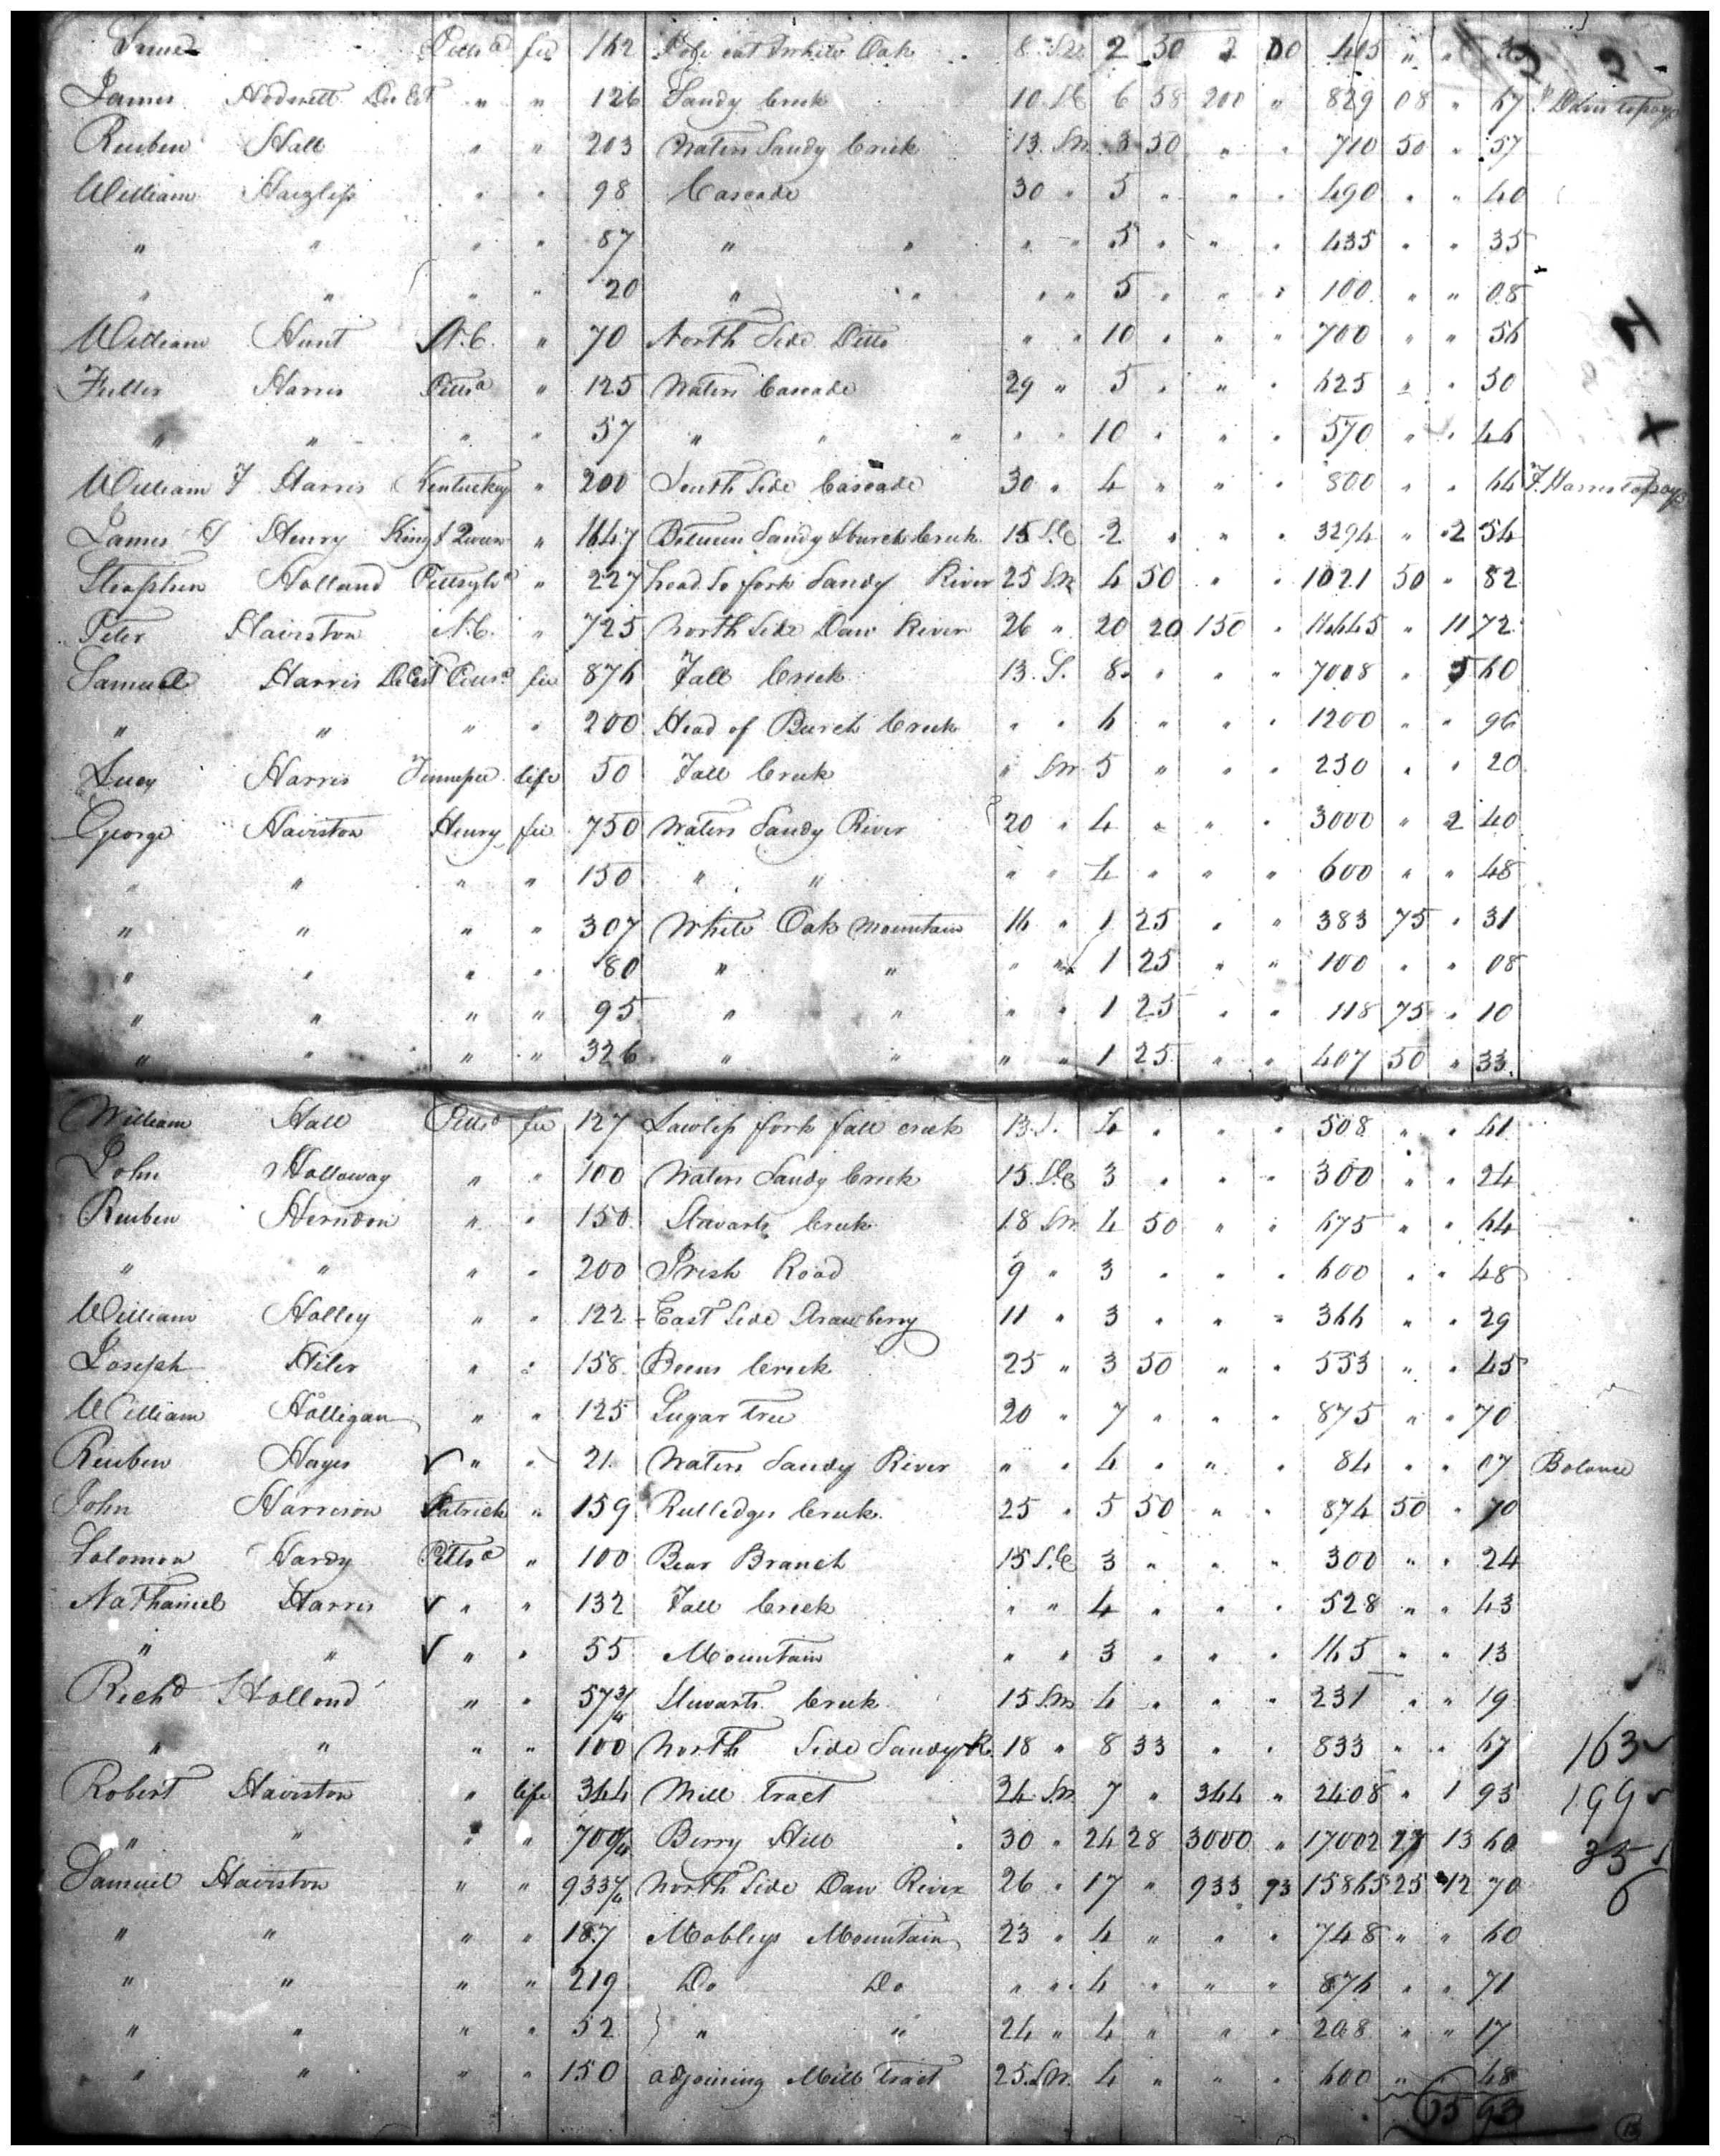 Same Pittsa fee 162 Pole cat & White Oak 8 SW 2 50 2 00 405 " " 33
James Hodnett Dec Est " " 126 Sandy Creek 10 SE 6 58 200 " 829 08 " 67 Davis to pay
Reuben Hall " " 203 Waters Sandy Creek 13 SW 3 50 " " 710 50 " 57
William Haizlip " " 98 Cascade 30 " 5 " " " 490 " " 40
" " " " 87 " " " " 5 " " " 435 " " 35
" " " " 20 " " " " 5 " " " 100 " " 08
William Hunt N.C. " 70 North Side Ditto " " 10 " " " 700 " " 56
Fuller Harris Pittsa " 125 Waters Cascade 29 " 5 " " " 625 " " 50
" " " " 57 " " " " " 10 " " " 570 " " 46
William F Harris Kentucky " 200 South Side Cascade 30 " 4 " " " 800 " " 64 F. Harris to pay
James Henry King & Queen " 1647 Between Sandy & burch Creek 15 SE 2 " " " 3294 " 2 54
Steaphen Holland Pittsyla " 227 head So fork Sandy River 25 SW 4 50 " " 1021 50 " 82
Peter Hairston N.C. " 725 North Side Dan River 26 " 20 20 150 " 14645 " 11 72
Samuel Harris Dec Est Pittsa fee 876 Fall Creek 13 S. 8 " " " 7008 " 5 60
" " " " 200 Head of Burch Creek " " 6 " " " 1200 " " 96
Lucy Harris Tennessee life 50 Fall Creek " SW 5 " " " 250 " " 20
George Hairston Henry fee 750 Waters Sandy River 20 " 4 " " " 3000 " 2 40
" " " " 150 " " " " 4 " " " 600 " " 48
" " " " 307 White Oak Mountain 16 " 1 25 " " 383 75 " 31
" " " " 80 " " " " 1 25 " " 100 " " 08
" " " " 95 " " " " 1 25 " " 118 75 " 10
" " " " 326 " " " " 1 25 " " 407 50 " 33
William Hall Pittsa fee 127 fork fall creek 13 S. 4 " " " 508 " " 41
John Holloway " " 100 Waters Sandy Creek 15 SE 3 " " " 300 " " 24
Reuben Herndon " " 150 Stewarts Creek 18 SW 4 50 " " 675 " " 54
" " " " 200 Irish Road 9 " 3 " " " 600 " " 48
William Holley " " 122 East Side Strawberry 11 " 3 " " " 366 " " 29
Joseph Hiler " " 158 Beens Creek 25 " 3 50 " " 553 " " 45
William Halligan " " 125 Sugar Tree 20 " 7 " " " 875 " " 70
Reuben Hayes " " 21 Waters Sandy River " " 4 " " " 84 " " 07 Balance
John Harrison Patrick " 159 Rutledges Creek 25 " 5 50 " " 874 50 " 70
Solomon Hardy Pittsa " 100 Bear Branch 15 SE 3 " " " 300 " " 24
Nathaniel Harris " " 132 Fall Creek " " 4 " " " 528 " " 43
" " " " 55 Mountain " " 3 " " " 165 " " 13
Richd Holland " " 57 3/4 Stewarts Creek 15 SW 4 " " " 231 " " 19
" " " " 100 North Side Sandy R. 18 " 8 33 " " 833 " " 67 163
Robert Hairston " life 344 Mill Tract 24 SW 7 " 344 " 2408 " 1 93 199
" " " " 700 1/4 Berry Hill 30 " 24 28 3000 " 17002 27 13 60 35
Samuel Hairston " " 933 1/4 North Side Dan River 26 " 17 " 933 93 15865 25 12 70 6
" " " " 187 Mobleys Mountain 23 " 4 " " " 748 " " 60
" " " " 219 Do Do " " 4 " " " 876 " " 71
" " " " 52 " " 24 " 4 " " " 208 " " 17
" " " " 150 adjoining Mill Tract 25 SW 4 " " " 600 " " 48
65 93